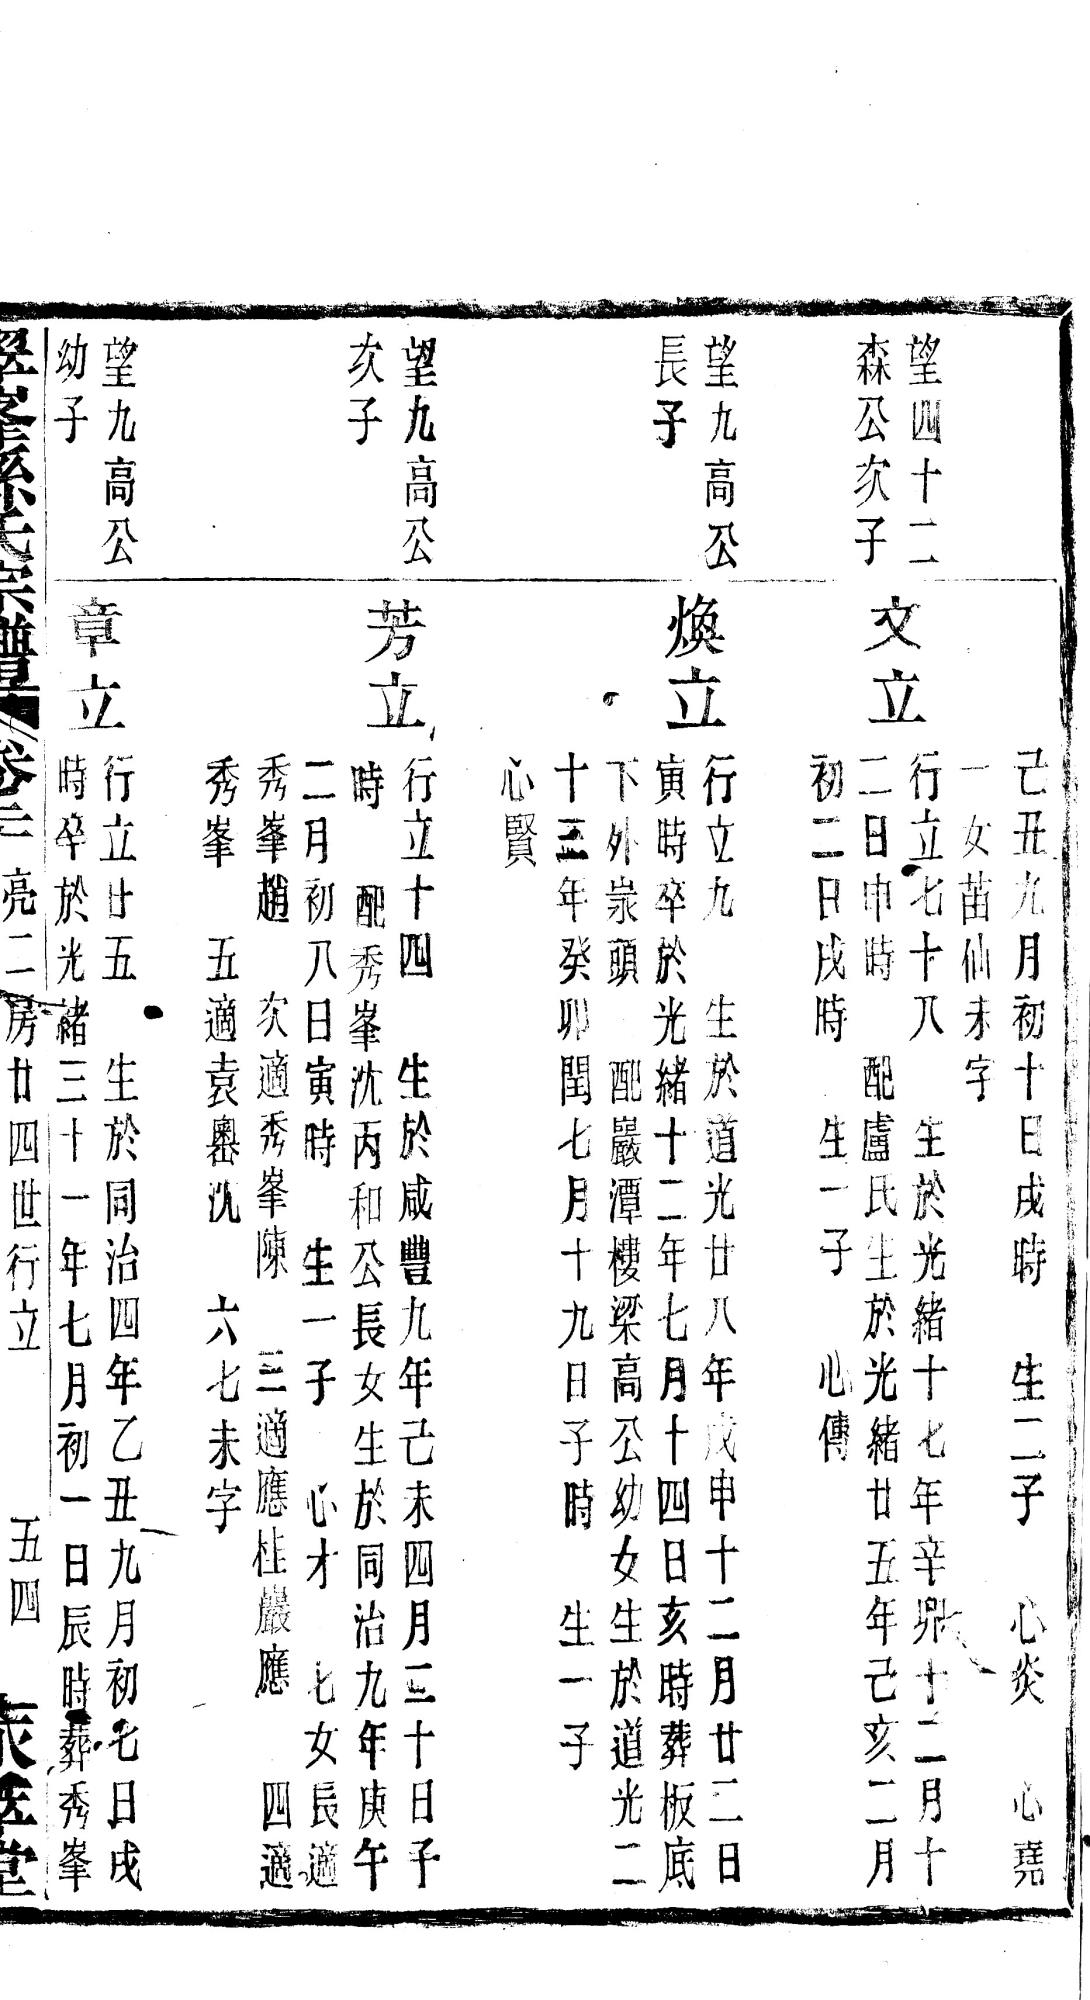 己丑九月初十日戌時 生二子 心炎 心堯
一女苗仙未字
望四十二
森公次子
文立
行立七十八 生於光緒十七年辛卯十二月十
二日申時 配盧氏生於光緒廿五年己亥二月
初二日戌時 生一子 心傳
望九高公
長子
煥立
行立九 生於道光廿八年戊申十二月廿二日
寅時卒於光緒十二年七月十四日亥時葬板底
下外泉頭 配嚴潭樓梁高公幼女生於道光二
十三年癸卯閏七月十九日子時 生一子
心賢
望九高公
次子
芳立
行立十四 生於咸豐九年己未四月三十日子
時 配秀峯沈丙和公長女生於同治九年庚午
二月初八日寅時 生一子 心才 七女長適
秀峯趙 次適秀峯陳 三適應桂巖應 四適
秀峯 五適袁嶴沈 六七未字
望九高公
幼子
章立
行立廿五 生於同治四年乙丑九月初七日戌
時卒於光緒三十一年七月初一日辰時葬秀峯
氏宗譜 卷二 亮二房廿四世行立 五四 堂